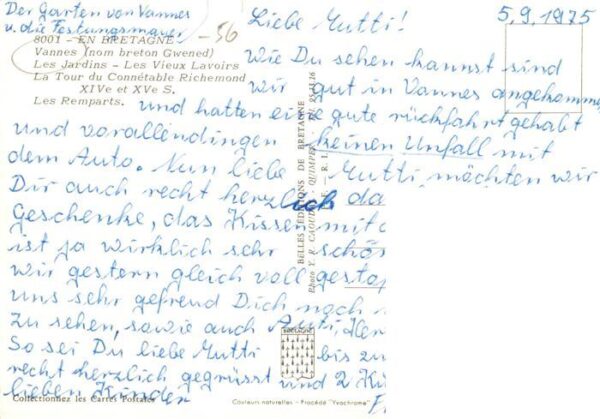 Der Garten von Vannes
u. die Festungsmauer
-56
8001 - EN BRETAGNE
Vannes (nom breton Gwened)
Les Jardins - Les Vieux Lavoirs
La Tour du Connétable Richemond
XIVe et XVe S.
Les Remparts.
5.9.1975
Liebe Mutti!
Wie Du sehen kannst sind
wir gut in Vannes angekomme
und hatten eine gute rückfahrt gehabt
und vorallendingen keinen Unfall mit
dem Auto. Nun liebe Mutti, möchten wir
Dir auch recht herzlich da
Geschenke, das Kissen mit d
ist ja wirklich sehr schön
wir gestern gleich voll gestop
uns sehr gefreud Dich noch
zu sehen, sowie auch
So sei Du liebe Mutti bis zu
recht herzlich gegrüsst und 2 Kü
lieben Kinder
BELLES EDITIONS DE BRETAGNE
BRETAGNE
Collectionnez les Cartes Postales
Couleurs naturelles - Procédé "Yvachrome"